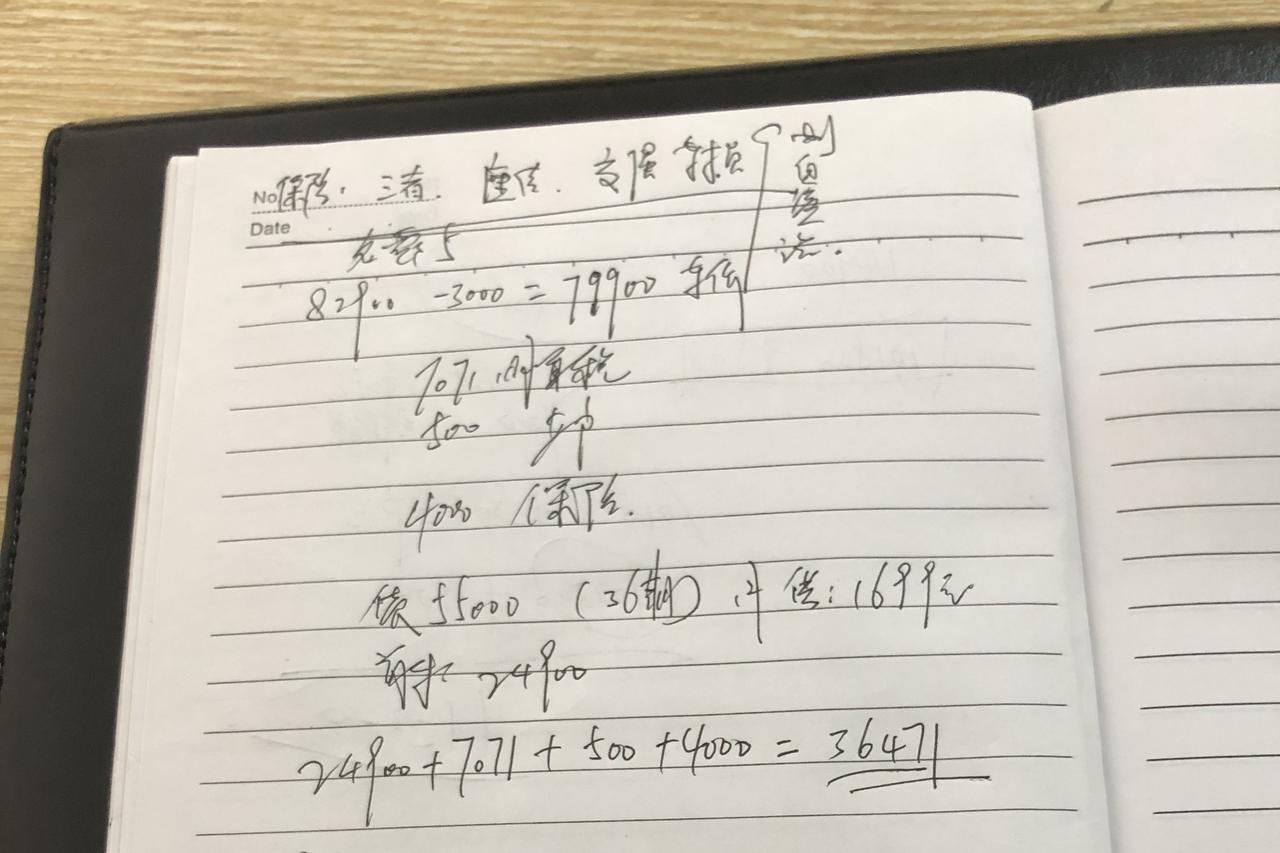 No 保险. 三者. 座位. 交强 车损
Date
82900 -3000 = 79900 车价
7071 购置税
500 上户
4000 保险.
做 55000 (36期) 月供: 1699元
首付: 24900
24900+7071+500+4000 = 36471